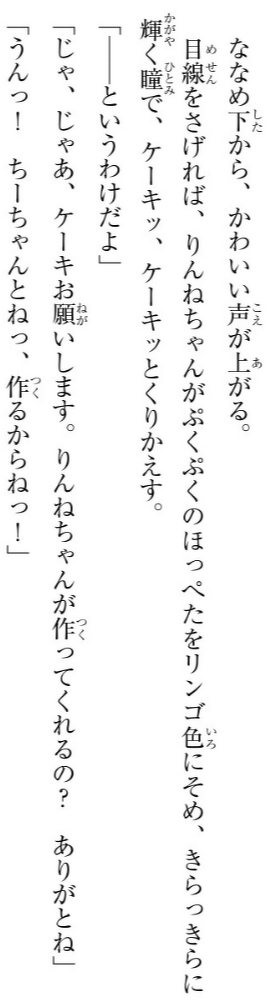 ななめ下から、かわいい声が上がる。
目線をさげれば、りんねちゃんがぷくぷくのほっぺたをリンゴ色にそめ、きらっきらに
輝く瞳で、ケーキッ、ケーキッとくりかえす。
「――というわけだよ」
「じゃ、じゃあ、ケーキお願いします。りんねちゃんが作ってくれるの？　ありがとね」
「うんっ！　ちーちゃんとねっ、作るからねっ！」